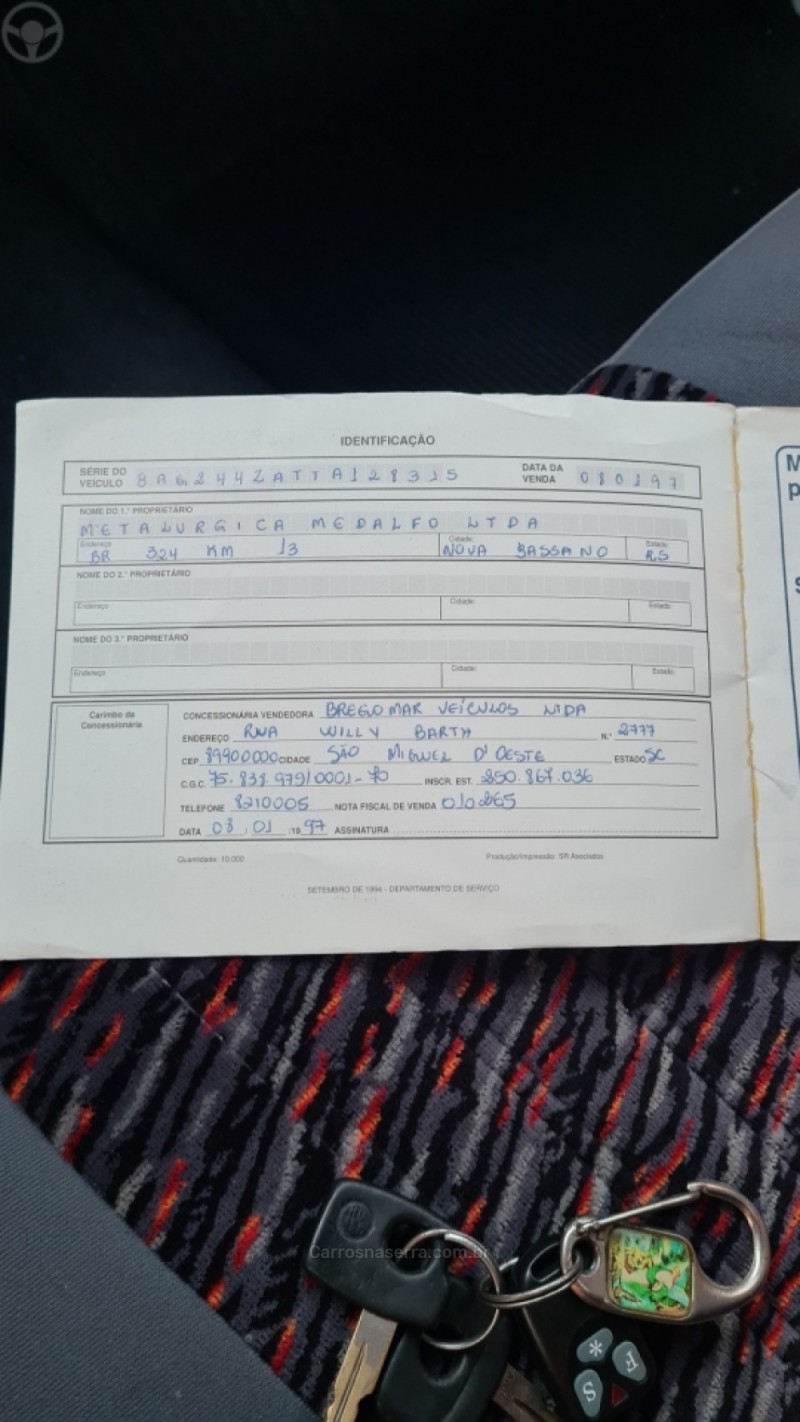 IDENTIFICAÇÃO
SÉRIE DO VEÍCULO 8AG244ZATTA128315 DATA DA VENDA 080197
NOME DO 1.º PROPRIETÁRIO
METALURGICA MEDALFO LTDA
Endereço Cidade: Estado:
BR 324 KM 13 NOVA BASSANO RS
NOME DO 2.º PROPRIETÁRIO
Endereço Cidade: Estado:
NOME DO 3.º PROPRIETÁRIO
Endereço Cidade: Estado:
Carimbo da Concessionária
CONCESSIONÁRIA VENDEDORA BREGOMAR VEÍCULOS LTDA
ENDEREÇO RUA WILLY BARTH N.º 2777
CEP 89900000 CIDADE SÃO MIGUEL D'OESTE ESTADO SC
C.G.C. 75.838.979/0001-70 INSCR. EST. 250.867.036
TELEFONE 8210005 NOTA FISCAL DE VENDA 010265
DATA 08 01 /19 97 ASSINATURA
Quantidade: 10.000 Produção/Impressão: SR Associados
SETEMBRO DE 1994 - DEPARTAMENTO DE SERVIÇO
M
p
Carrosnaserra.com.br